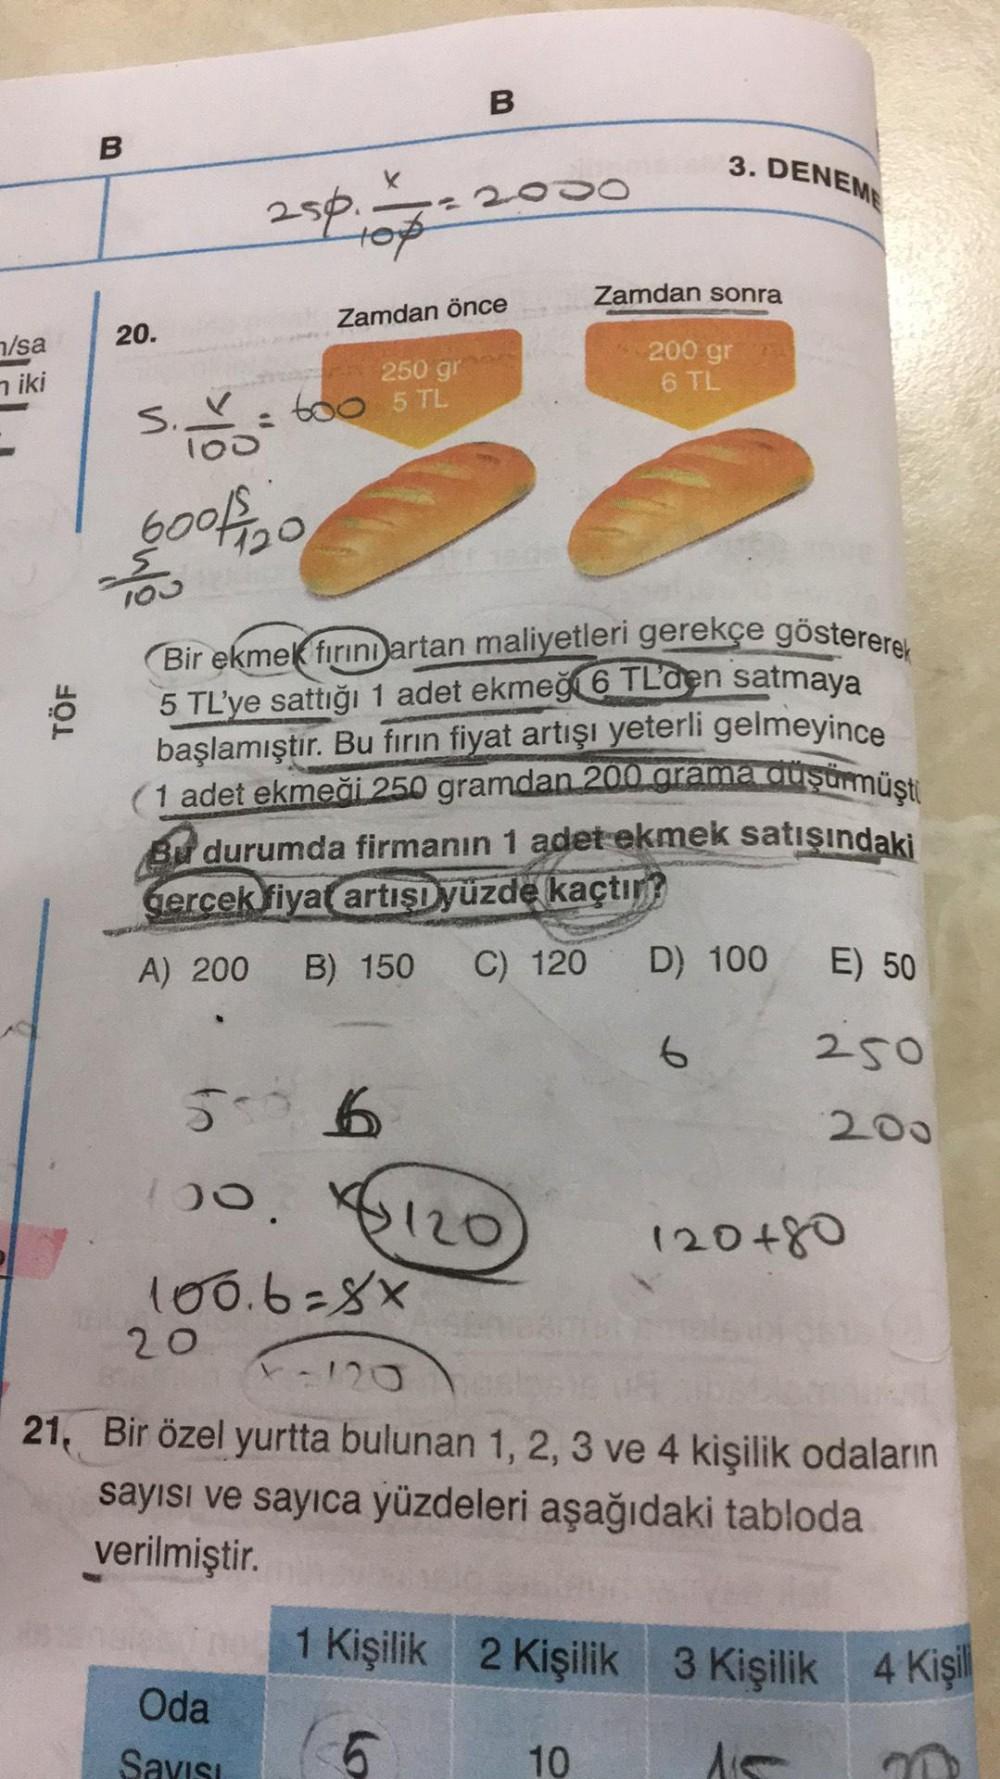 B
B
3. DENEME
250 . x/100 = 2000
n/sa
n iki
20.
Zamdan önce
Zamdan sonra
250 gr
5 TL
200 gr
6 TL
5. x/100 = 600
600 5
120
= 5/100
TÖF
Bir ekmek fırını artan maliyetleri gerekçe göstererek
5 TL'ye sattığı 1 adet ekmeği 6 TL'den satmaya
başlamıştır. Bu fırın fiyat artışı yeterli gelmeyince
1 adet ekmeği 250 gramdan 200 grama düşürmüştü
Bu durumda firmanın 1 adet ekmek satışındaki
gerçek fiyat artışı yüzde kaçtır?
A) 200 B) 150 C) 120 D) 100 E) 50
6 250
200
5 6
100. x → 120
120+80
100.6=5x
20
x=120
21. Bir özel yurtta bulunan 1, 2, 3 ve 4 kişilik odaların
sayısı ve sayıca yüzdeleri aşağıdaki tabloda
verilmiştir.
1 Kişilik 2 Kişilik 3 Kişilik 4 Kişili
Oda
Sayısı
5 10 15 20